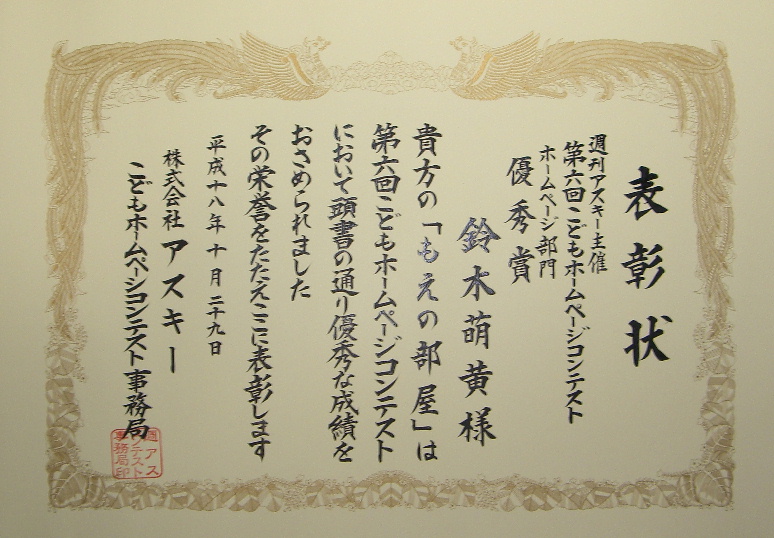 表彰状
週刊アスキー主催
第六回こどもホームページコンテスト
ホームページ部門
優秀賞
鈴木萌黄様
貴方の「もえの部屋」は
第六回こどもホームページコンテスト
において頭書の通り優秀な成績を
おさめられました
その栄誉をたたえここに表彰します
平成十八年十月二十九日
株式会社アスキー
こどもホームページコンテスト事務局